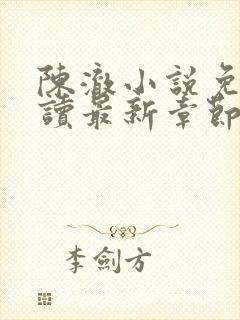 陳澈小説免
讀最新章節
李劍方